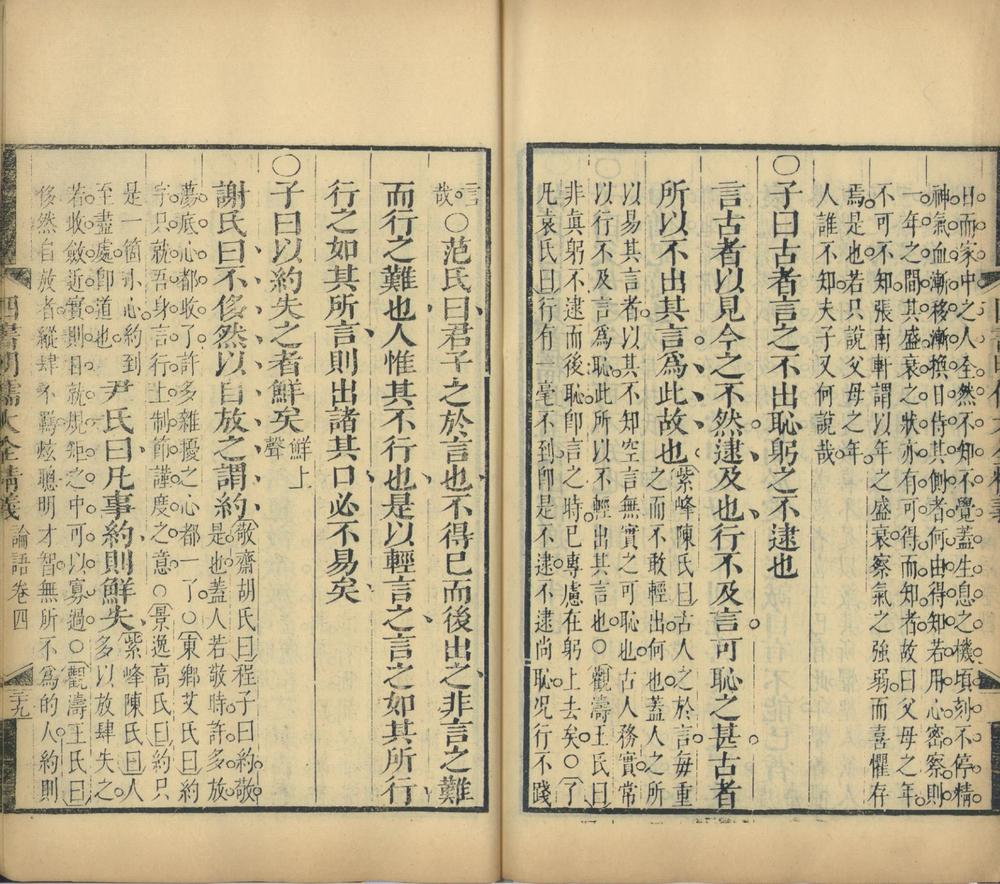 日而家中之人全然不知不覺蓋生息之機頃刻不停精
神氣血漸移漸換日侍其側者何由得知若用心密察則
一年之間其盛衰之狀亦有可得而知者故曰父母之年
不可不知張南軒謂以年之盛衰察氣之強弱而喜懼存
焉是也若只說父母之年
人誰不知夫子又何說哉
○子曰古者言之不出恥躬之不逮也
言古者以見今之不然逮及也行不及言可恥之甚古者
所以不出其言爲此故也
紫峰陳氏曰古人之於言每重
之而不敢輕出何也蓋人之所
以易其言者以其不知空言無實之可恥也古人務實常
○以行不及言爲恥此所以不輕出其言也○觀濤王氏曰
非真躬不逮而後恥卽言之時已專慮在躬上去矣○了
凡袁氏曰行有一毫不到卽是不逮不逮尚恥况行不踐
言
哉
○范氏曰君子之於言也不得已而後出之非言之難
而行之難也人惟其不行也是以輕言之言之如其所行
行之如其所言則出諸其口必不易矣
○子曰以約失之者鮮矣
鮮上
聲
謝氏曰不侈然以自放之謂約
敬齋胡氏曰程子曰約敬
是也蓋人若敬時許多放
蕩底心都收了許多雜擾之心都一了○東鄉艾氏曰約
字只就吾身言行上制節謹度之意○景逸高氏曰約只
是一箇小心約到
至盡處卽道也
尹氏曰凡事約則鮮失
紫峰陳氏曰人
多以放肆失之
若收斂近實則日就規矩之中可以寡過○觀濤王氏曰
侈然自放者縱肆不羈炫聰明才智無所不爲的人約則
四書明儒大全精義
論語卷四
三十九